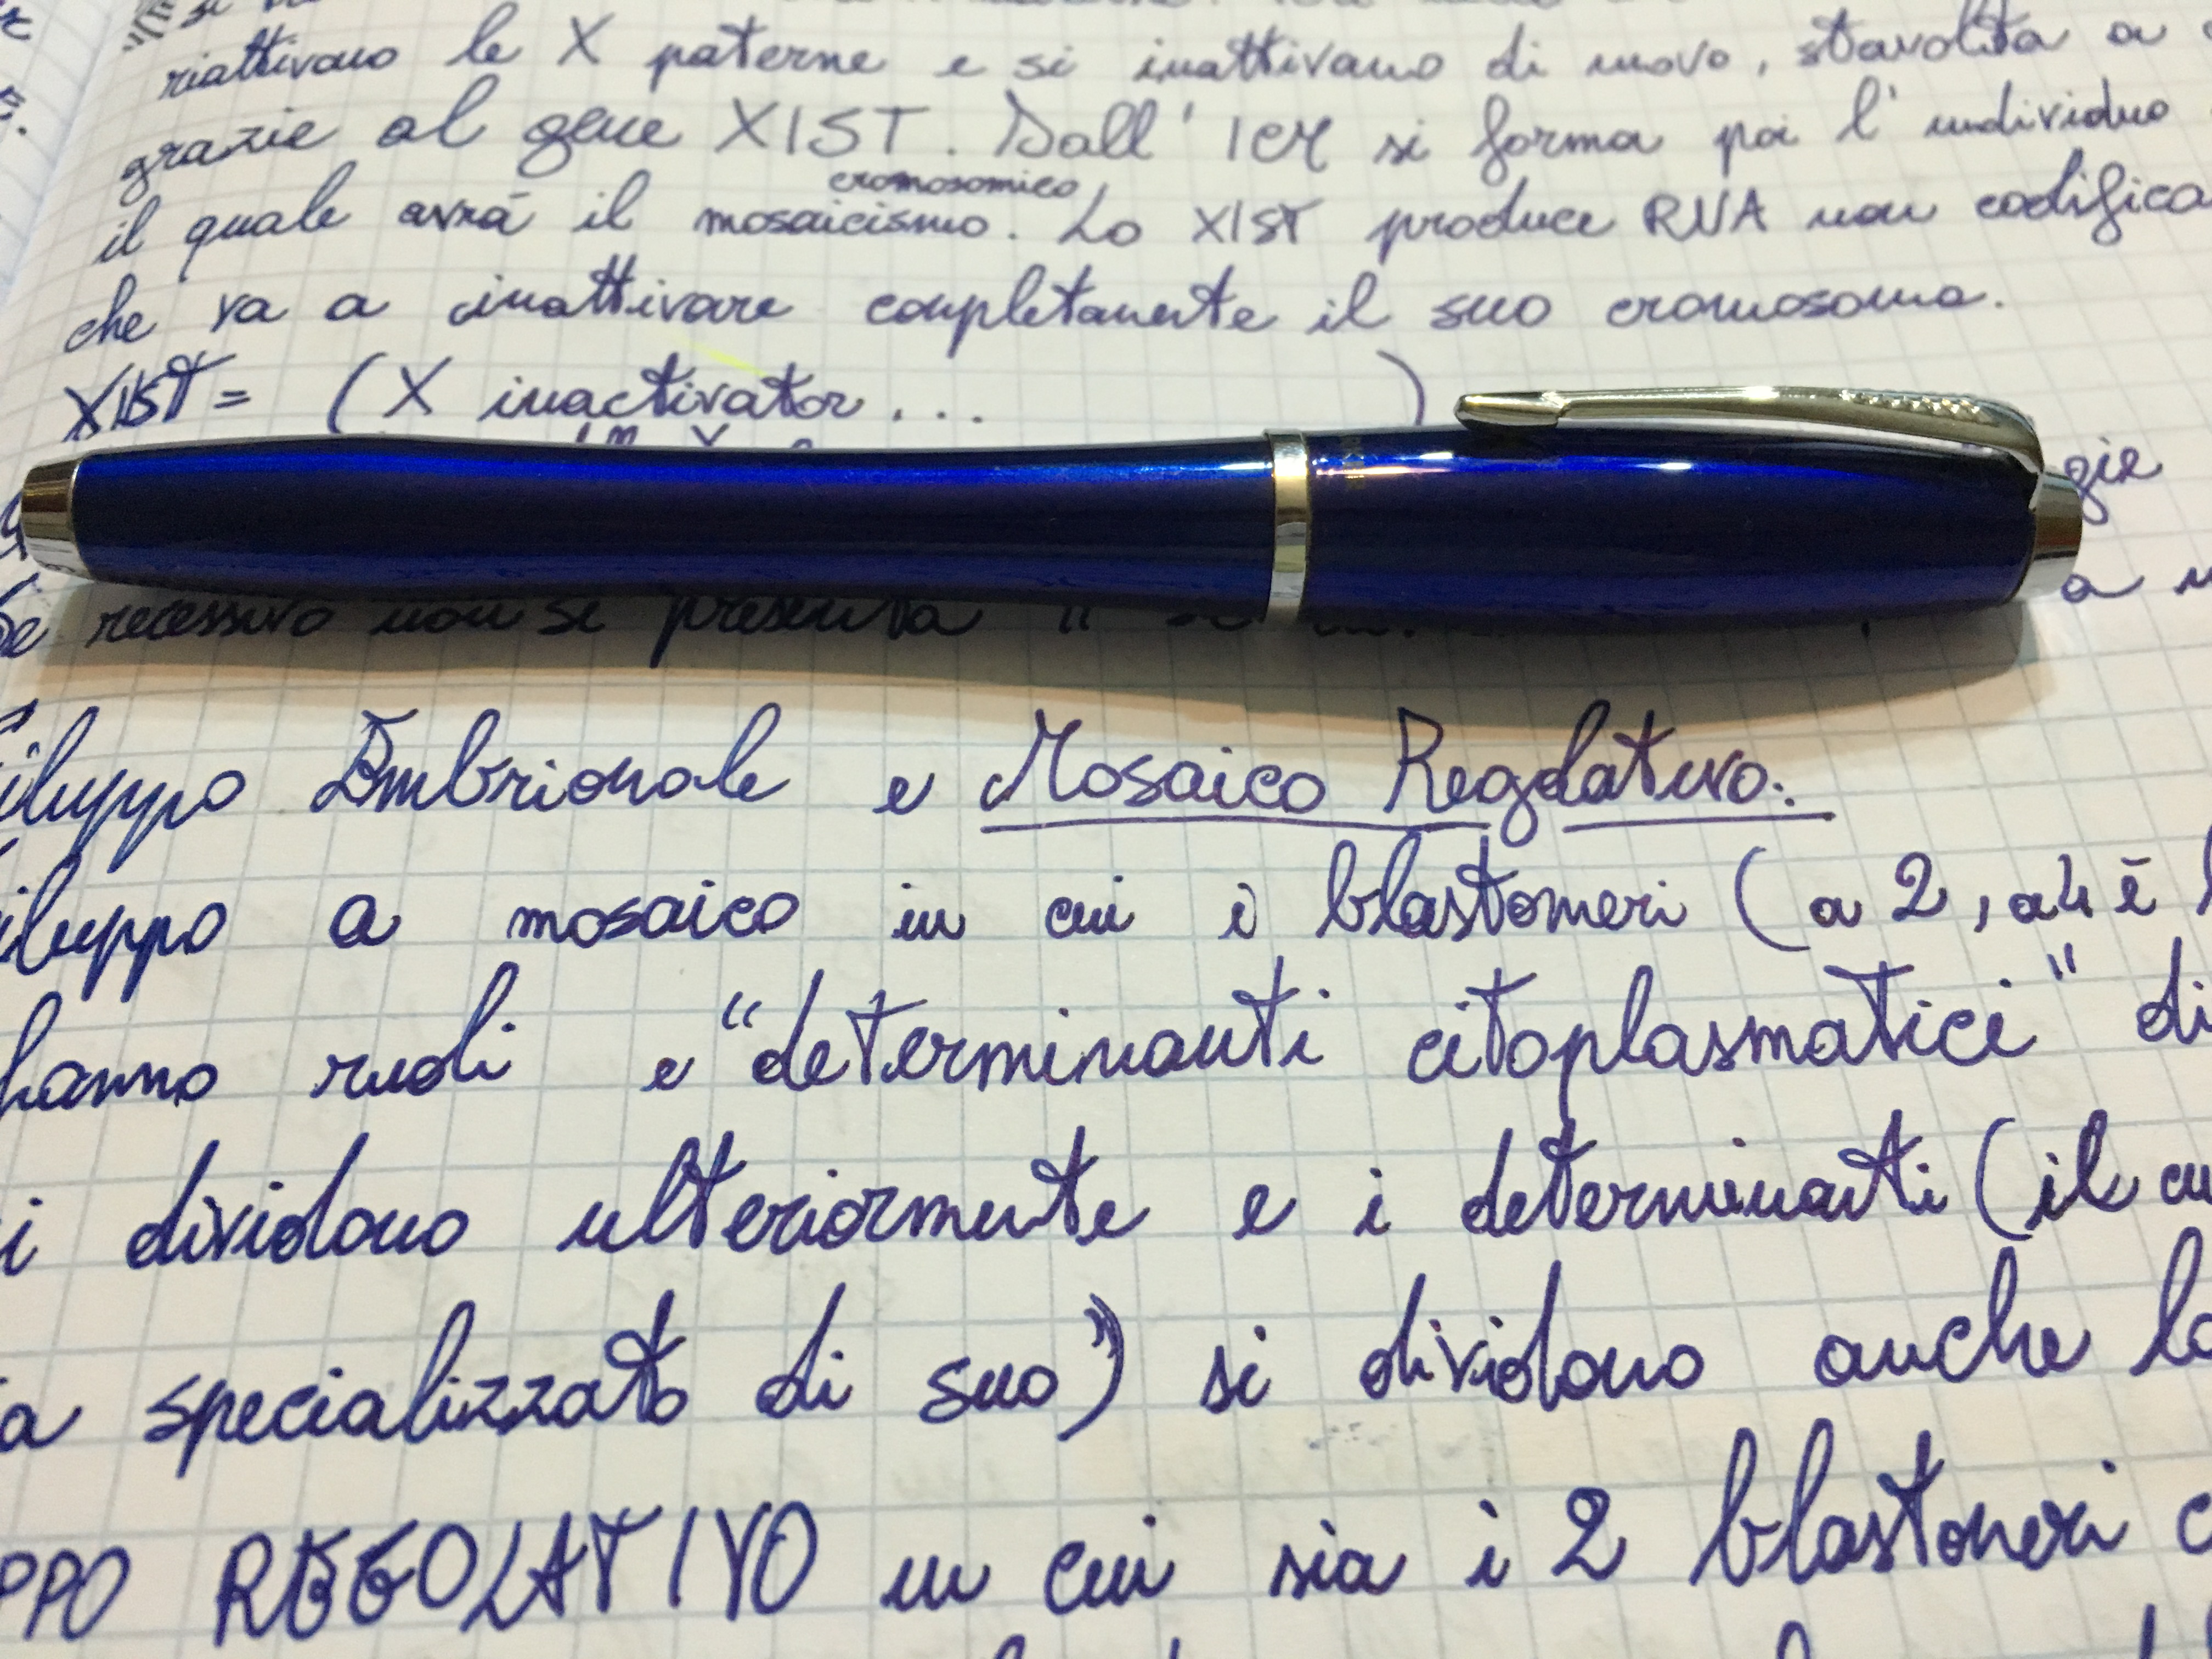 si
riattivano le X paterne e si inattivano di nuovo, stavolta a
grazie al gene XIST. Dall' ICM si forma poi l' individuo
cromosomico
il quale avrà il mosaicismo. Lo XIST produce RNA non codifica
che va a inattivare completamente il suo cromosoma.
XIST = (X inactivator ... )
gie
Se recessivo non si presenta
iluppo Embrionale e Mosaico Regolativo:
iluppo a mosaico in cui i blastomeri (a 2, a 4 è
hanno ruoli e "determinanti citoplasmatici" di
i dividono ulteriormente e i determinanti (il cu
a specializzato di suo) si dividono anche lo
PPO REGOLATIVO in cui sia i 2 blastomeri c